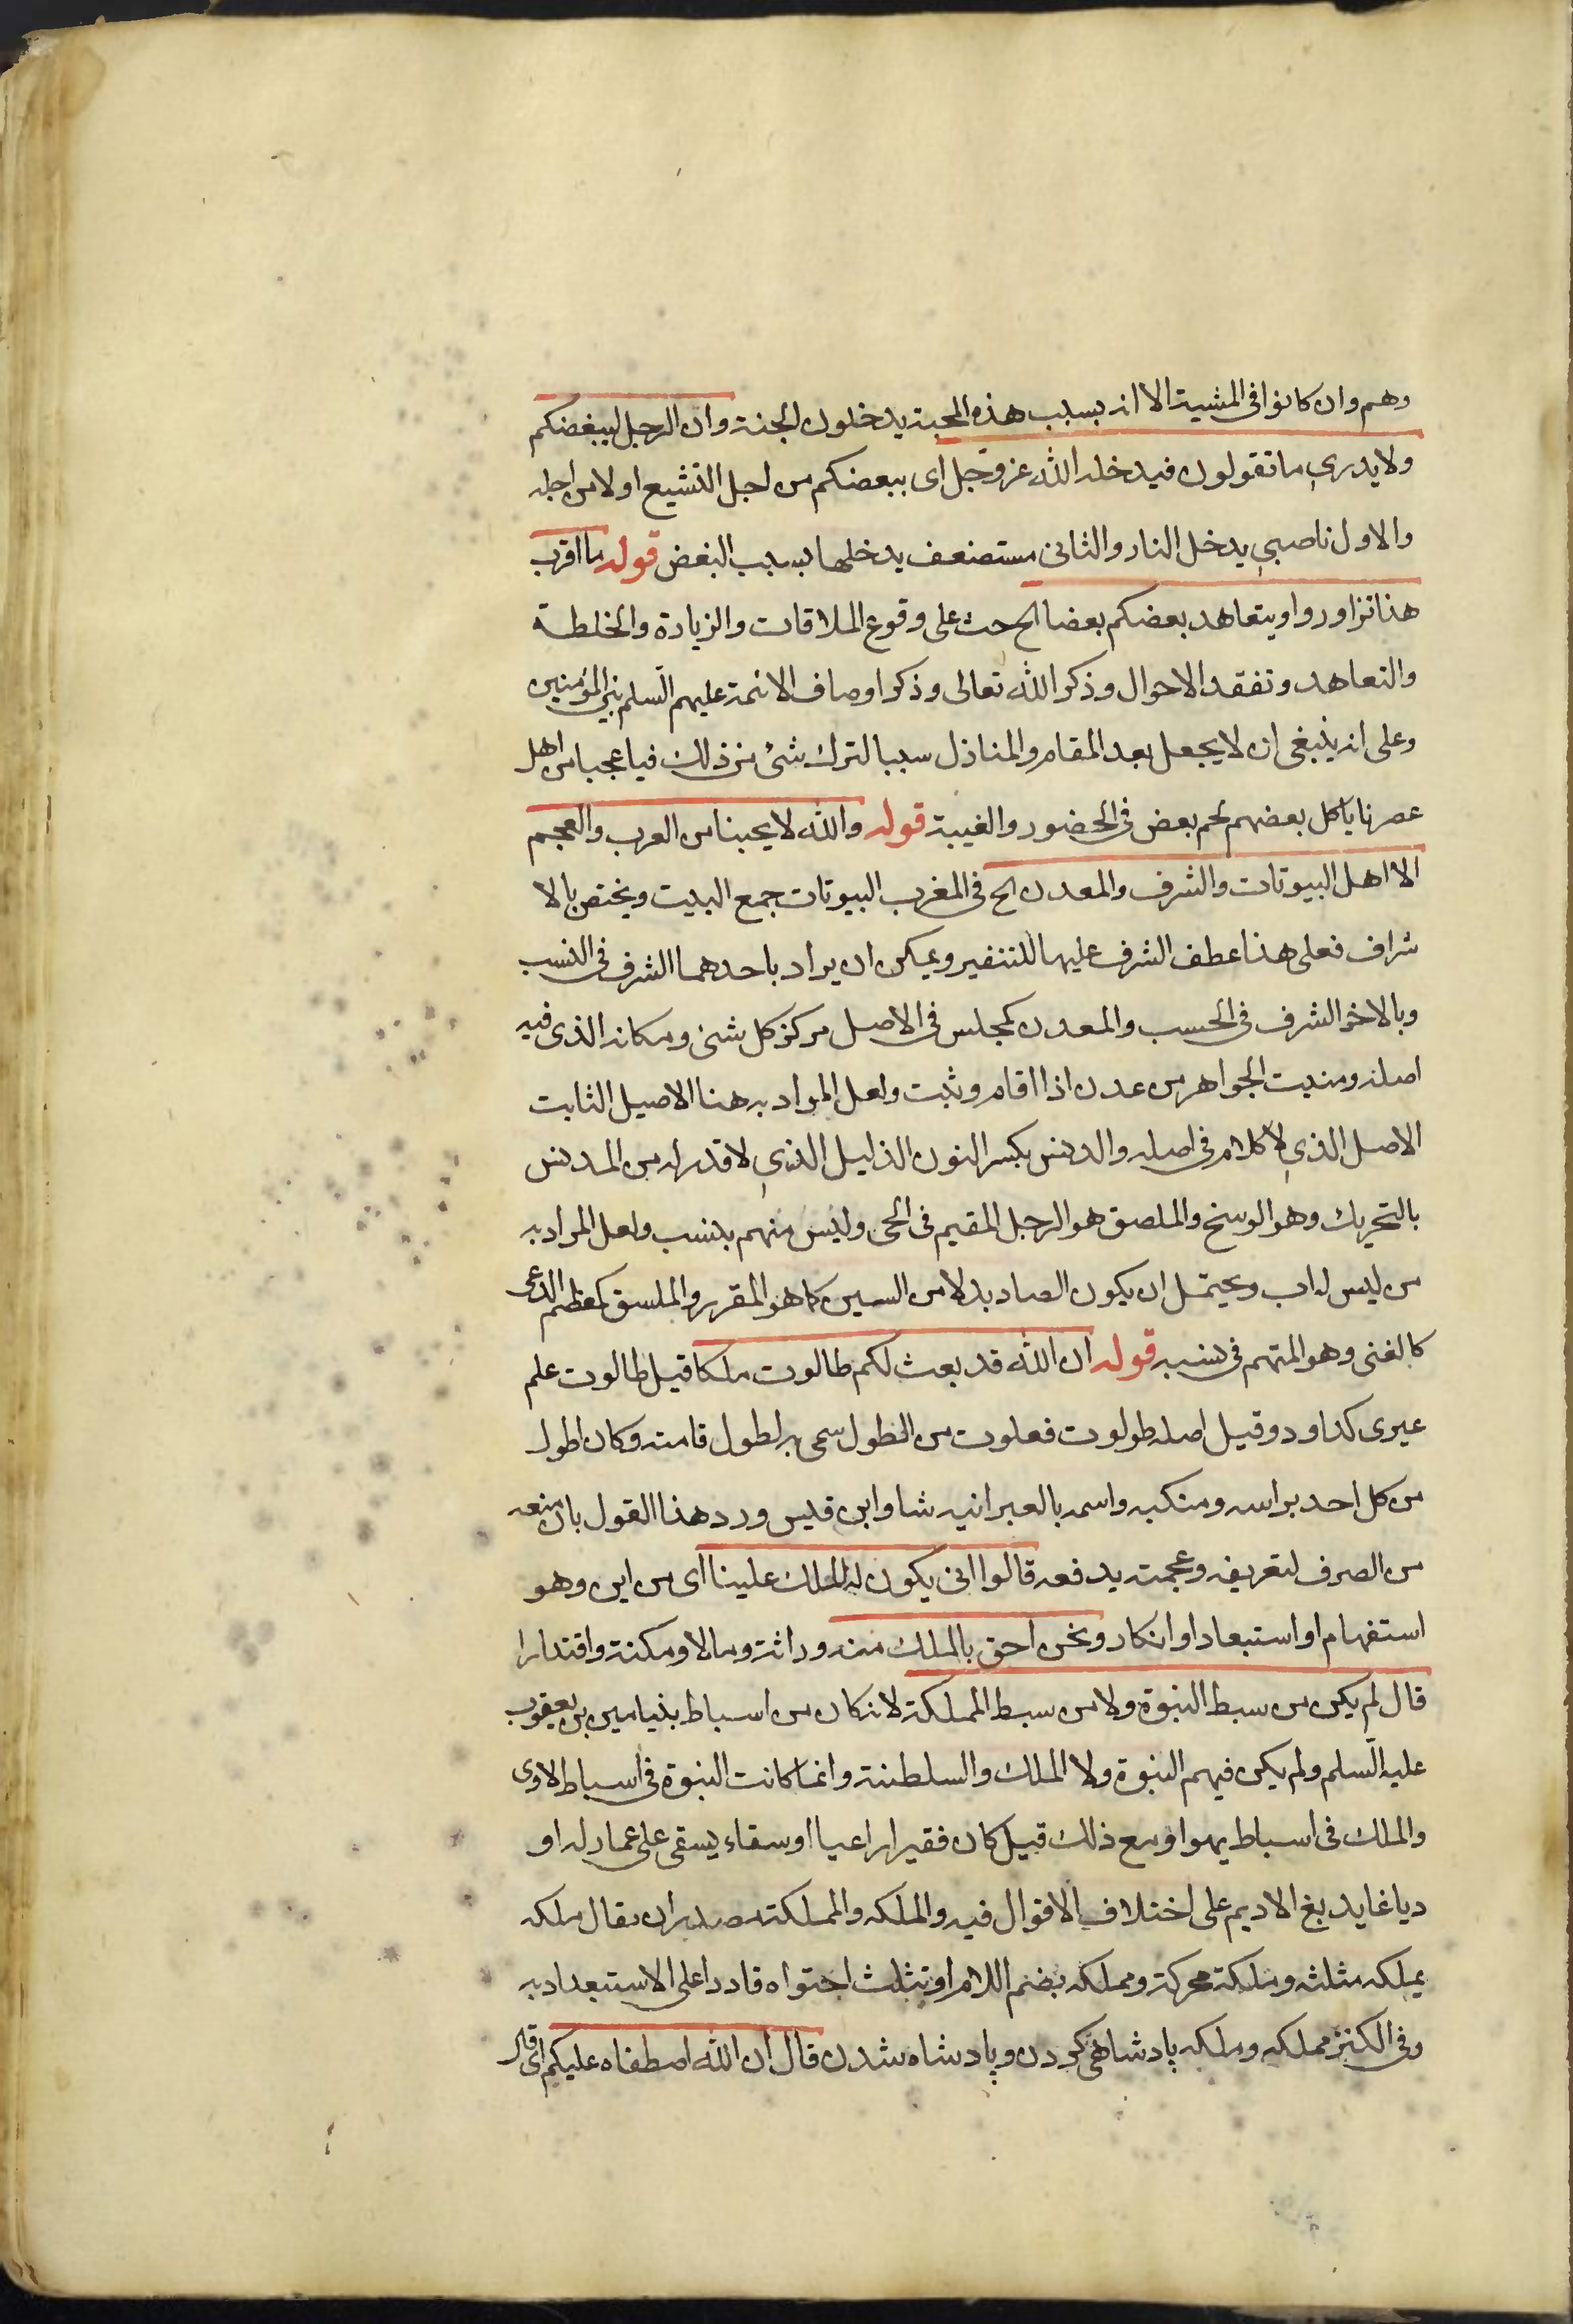 وهم وان كانوا فى المشية الا انه بسبب هذه المحبة يدخلون الجنة وان الرجل ليبغضكم
ولا يدرى ما تقولون فيدخله الله عز وجل اى يبغضكم من اجل التشيع او لا من اجله
والاول ناصبي يدخل النار والثانى مستضعف يدخلها بسبب البغض قوله ما اقرب
هذا تزاوروا ويتعاهد بعضكم بعضا الح حث على وقوع الملاقات والزيارة والخلطة
والتعاهد وتفقد الاحوال وذكر الله تعالى وذكر اوصاف الائمة عليهم السلم بين المؤمنين
وعلى انه ينبغى ان لا يجعل بعد المقام والمنازل سببا لترك شئ من ذلك فيا عجبا من اهل
عصرنا ياكل بعضهم لحم بعض فى الحضور والغيبة قوله والله لا يحبنا من العرب والعجم
الا اهل البيوتات والشرف والمعدن الح فى المغرب البيوتات جمع البيت ويختص بالا
شراف فعلى هذا عطف الشرف عليها للتفسير ويمكن ان يراد باحدهما الشرف فى النسب
وبالاخر الشرف فى الحسب والمعدن كمجلس فى الاصل مركز كل شئ ومكانه الذى فيه
اصله ومنبت الجواهر من عدن اذا اقام وثبت ولعل المراد به هنا الاصيل الثابت
الاصل الذي لا كلام فى اصله والدنس بكسر النون الذليل الذي لا قدر له من المدنس
بالتحريك وهو الوسخ والملصق هو الرجل المقيم فى الحى وليس منهم بنسب ولعل المراد به
من ليس له اب ويحتمل ان يكون الصاد بدلا من السين كما هو المقرر والملسق كمعظم الدعى
كالغنى وهو المتهم فى نسبه قوله ان الله قد بعث لكم طالوت ملكا قيل طالوت علم
عبرى كداود وقيل اصله طولوت فعلوت من الطول سمى به لطول قامته وكان اطول
من كل احد براسه ومنكبه واسمه بالعبرانيه شاو ابن قيس ورد هذا القول بان منعه
من الصرف لتعريفه وعجمته يدفعه قالوا انى يكون له الملك علينا اى من اين وهو
استفهام او استبعاد او انكار ونحن احق بالملك منه وراثة ومالا ومكنة واقتدارا
قال لم يكن من سبط النبوة ولا من سبط المملكة لانه كان من اسباط بنيامين بن يعقوب
عليه السلم ولم يكن فيهم النبوة ولا الملك والسلطنة وانما كانت النبوة فى اسباط لاوى
والملك فى اسباط يهوا ومع ذلك قيل كان فقيرا راعيا او سقاء يسقى على حمار له او
دباغا يدبغ الاديم على اختلاف الاقوال فيه والملكه والمملكة مصدران يقال ملكه
يملكه مثلثه وملكة محركة ومملكه بضم اللام او تثلث احتواه قادرا على الاستبداد به
وفى الكنز مملكه وملكه پادشاهى كردن وپادشاه شدن قال ان الله اصطفاه عليكم اى قال